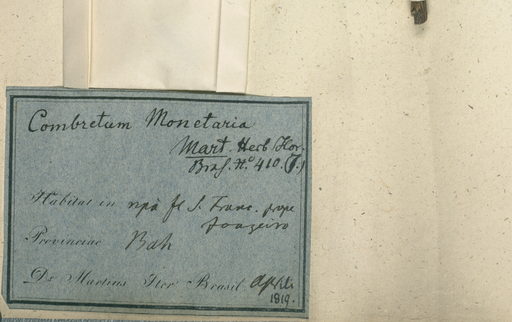 Combretum Monetaria
Mart. Herb. Flor.
Bras. No. 410. (T.)
Habitat in ripâ fl. S. Franc. prope
Joazeiro
Provinciae Bah
Dr. Martius Iter Brasil. Aprili
1819.